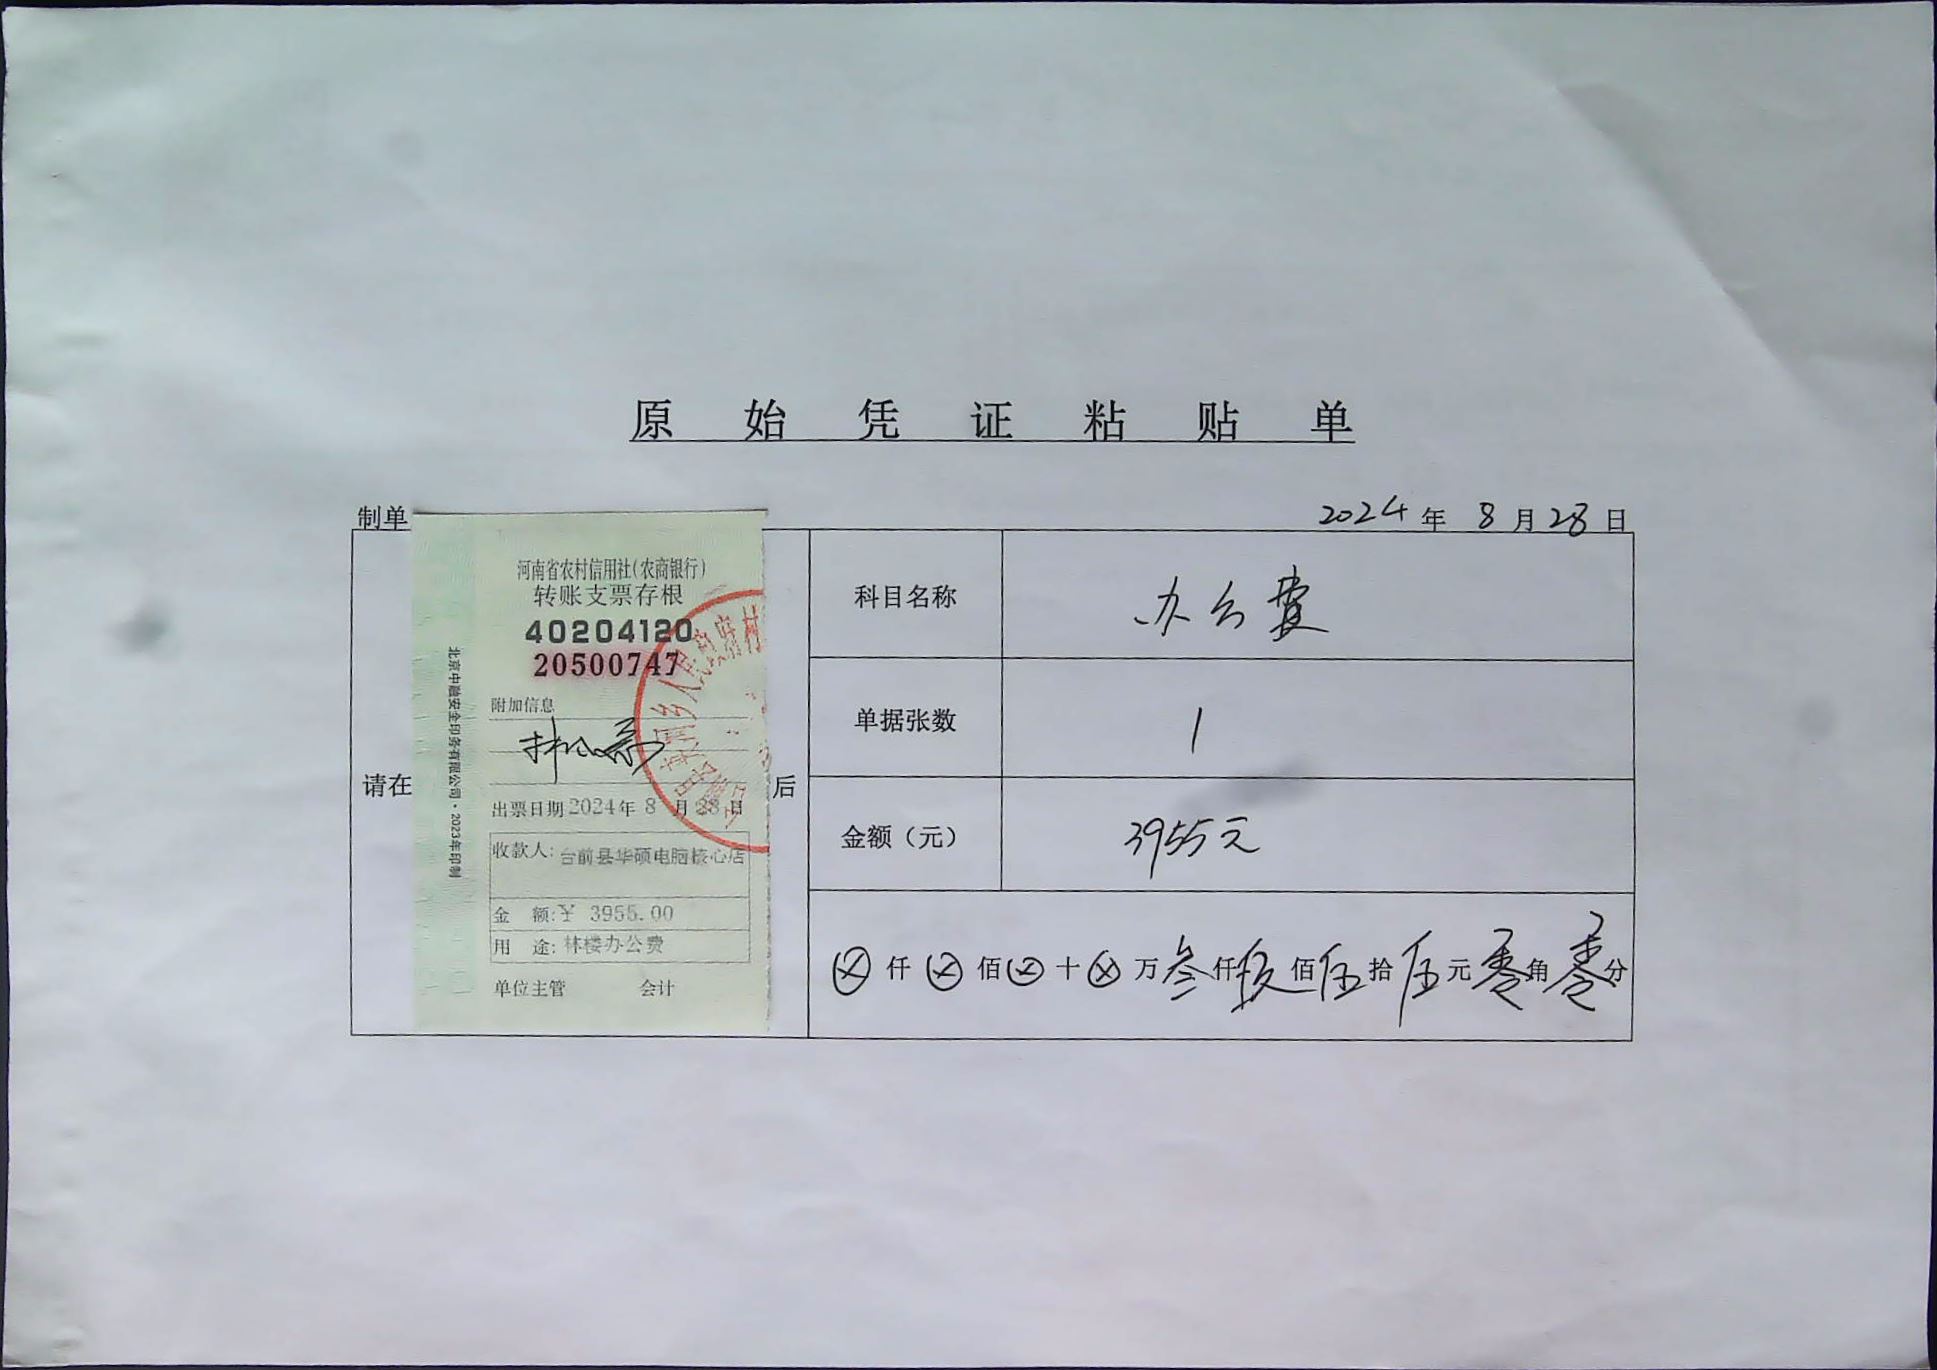 原始凭证粘贴单
制单
2024年 8月28日
请在
后
河南省农村信用社(农商银行)
转账支票存根
40204120
20500747
附加信息
出票日期2024年 8 月28日
收款人: 台前县华硕电脑核心店
金 额:¥ 3955.00
用 途: 林楼办公费
单位主管 会计
北京中融安全印务有限公司·2023年印制
人民政府村
科目名称 办公费
单据张数 1
金额（元） 3955元
ⓧ仟ⓧ佰ⓧ十ⓧ万叁仟玖佰伍拾伍元零角零分